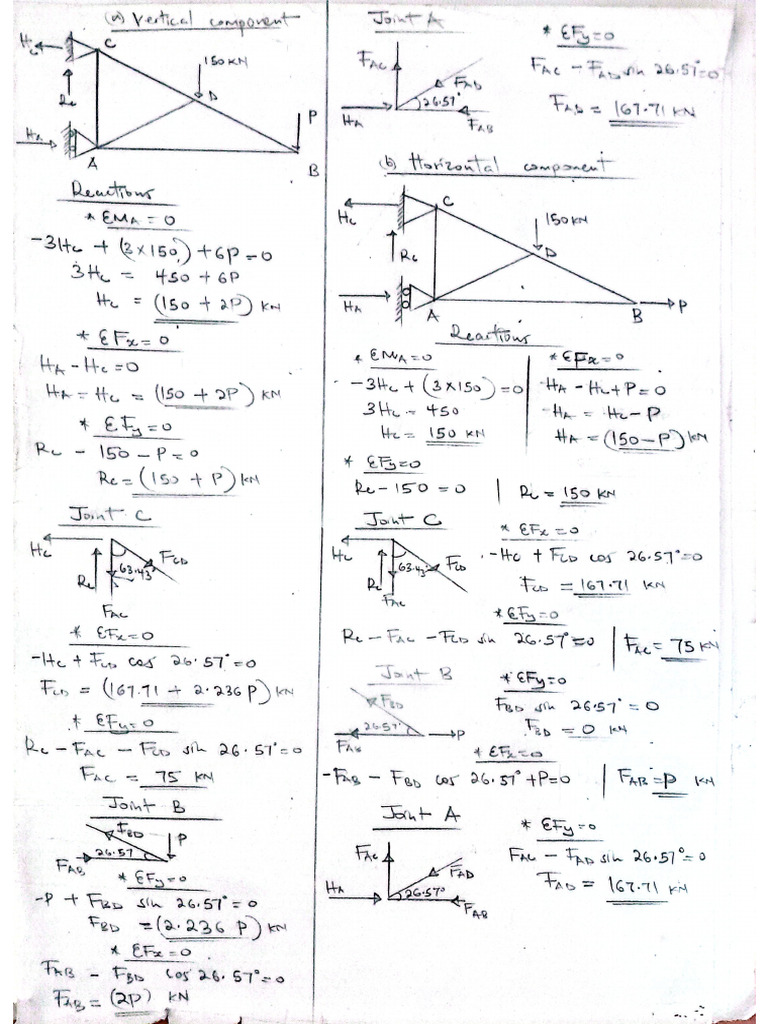 (a) Vertical component
Hc
C
150KN
Rc
D
P
HA
A
B
Reactions
* ΣMA = 0
-3Hc + (3x150) + 6P = 0
3Hc = 450 + 6P
Hc = (150 + 2P) KN
* ΣFx = 0
HA - Hc = 0
HA = Hc = (150 + 2P) KN
* ΣFy = 0
Rc - 150 - P = 0
Rc = (150 + P) KN
Joint C
Hc
63.43°
FCD
Rc
FAC
* ΣFx = 0
-Hc + FCD cos 26.57° = 0
FCD = (167.71 + 2.236P) KN
* ΣFy = 0
Rc - FAC - FCD sin 26.57° = 0
FAC = 75 KN
Joint B
FBD
P
26.57
FAB
* ΣFy = 0
-P + FBD sin 26.57° = 0
FBD = (2.236 P) KN
* ΣFx = 0
FAB - FBD cos 26.57° = 0
FAB = (2P) KN
Joint A
FAC
FAD
26.57°
HA
FAB
* ΣFy = 0
FAC - FAD sin 26.57° = 0
FAD = 167.71 KN
(b) Horizontal component
C
Hc
150KN
Rc
D
HA
A
B
P
Reactions
* ΣMA = 0
-3Hc + (3x150) = 0
3Hc = 450
Hc = 150 KN
* ΣFx = 0
HA - Hc + P = 0
HA = Hc - P
HA = (150 - P) KN
* ΣFy = 0
Rc - 150 = 0 | Rc = 150 KN
Joint C
Hc
63.43°
FCD
Rc
FAC
* ΣFx = 0
-Hc + FCD cos 26.57° = 0
FCD = 167.71 KN
* ΣFy = 0
Rc - FAC - FCD sin 26.57° = 0 | FAC = 75 KN
Joint B
FBD
26.57°
FAB
P
* ΣFy = 0
FBD sin 26.57° = 0
FBD = 0 KN
* ΣFx = 0
-FAB - FBD cos 26.57° + P = 0 | FAB = P KN
Joint A
FAC
FAD
26.57°
HA
FAB
* ΣFy = 0
FAC - FAD sin 26.57° = 0
FAD = 167.71 KN